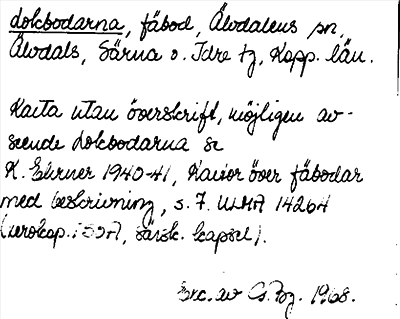 Lokbodarna, fäbod, Älvdalens sn,
Älvdals, Särna o. Idre tg, Kopp. län.
Karta utan överskrift, möjligen av-
seende Lokbodarna se
K. Ehrner 1940-41, Kartor över fäbodar
med beskrivning, s. 7. ULMA 14264
särsk. kapsel).
Exc. av 1968.